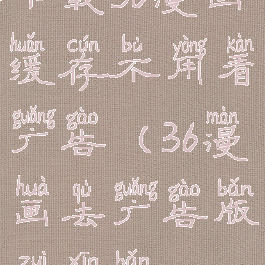 下载36漫画
huǎn cún bù yòng kàn
缓存不用看
guǎng gào màn
广告(36漫
huà qù guǎng gào bǎn
画去广告版
zuì xīn bǎn